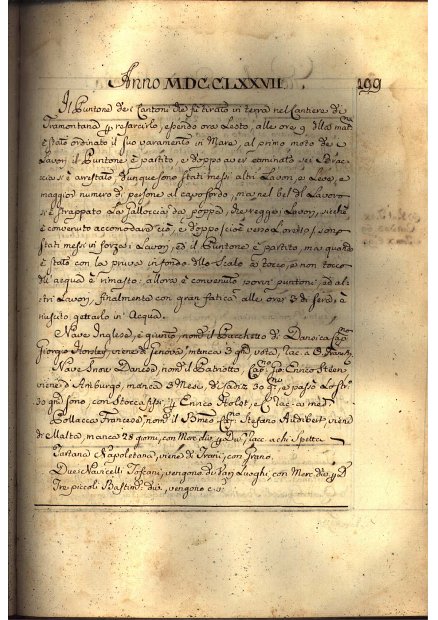 Anno MDCCLXXVII 199
Il Puntone de i Cantoni che fù tirato in terra nel Cantiere di
Tramontana p resarcirlo, essendo ora Lesto, alle ore 9 di
è stato ordinato il suo varamento in Mare, al primo moto de
Lavori il Puntone è partito, e doppo aver caminato sei Braccia
si è arrestato, dunque sono stati messi altri Lavori, a Leve, e
maggior numero di persone al capo fordo, ma nel bel di Lavoro
si è strappato La da poppa, che regge i Lavori, sicche
è convenuto accomodare ciò, e doppo cio è verso sono
stati messi in forza i Lavori, ed il Puntone è partito, ma quando
è stato con la pruva in fondo dllo Scalo à tocco, e non tocco
dll'acqua è rimasto: allora è convenuto porvi puntoni, ed al
tri Lavori, finalmente con gran fatica alle ore 3 di sera, è
riuscito gettarlo in Acqua.
Nave Inglese, è giunto, nom. il Pacchetto di Cap.
Giorgio viene di Genova, manca 3 gni vota,
Nave Snow Danese, nom. il Patriotto, Cap. Enrico Steen,
viene d'Amburgo, manca 2 Mesi, di Cadiz 30 gi, e passò Lo Str.
30 gni sono, con Stocca Enrico
Pollacca Francese, nom. il Cap. Stefano Audibert, viene
di Malta, manca 28 giorni, con Merc. div. a chi Spetta
Tartana Napoletana, viene di Trani, con Grano.
Due Navicelli Toscani, vengono di Vari Luoghi, con Merc. div.
Tre piccoli Bastim. div. vengono